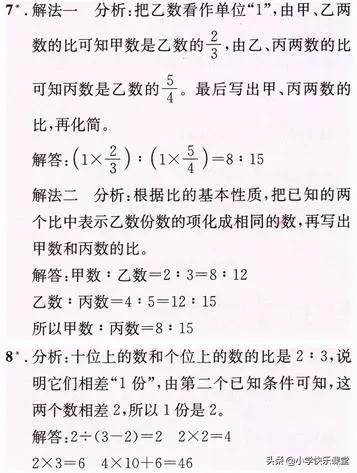 7*.解法一 分析:把乙数看作单位“1”,由甲、乙两
数的比可知甲数是乙数的2/3,由乙、丙两数的比
可知丙数是乙数的5/4。最后写出甲、丙两数的
比,再化简。
解答:(1×2/3):(1×5/4)=8:15
解法二 分析:根据比的基本性质,把已知的两
个比中表示乙数份数的项化成相同的数,再写出
甲数和丙数的比。
解答:甲数:乙数=2:3=8:12
乙数:丙数=4:5=12:15
所以甲数:丙数=8:15
8*.分析:十位上的数和个位上的数的比是2:3,说
明它们相差“1份”,由第二个已知条件可知,这
两个数相差2,所以1份是2。
解答:2÷(3-2)=2 2×2=4
2×3=6 4×10+6=46
头条@小学快乐课堂